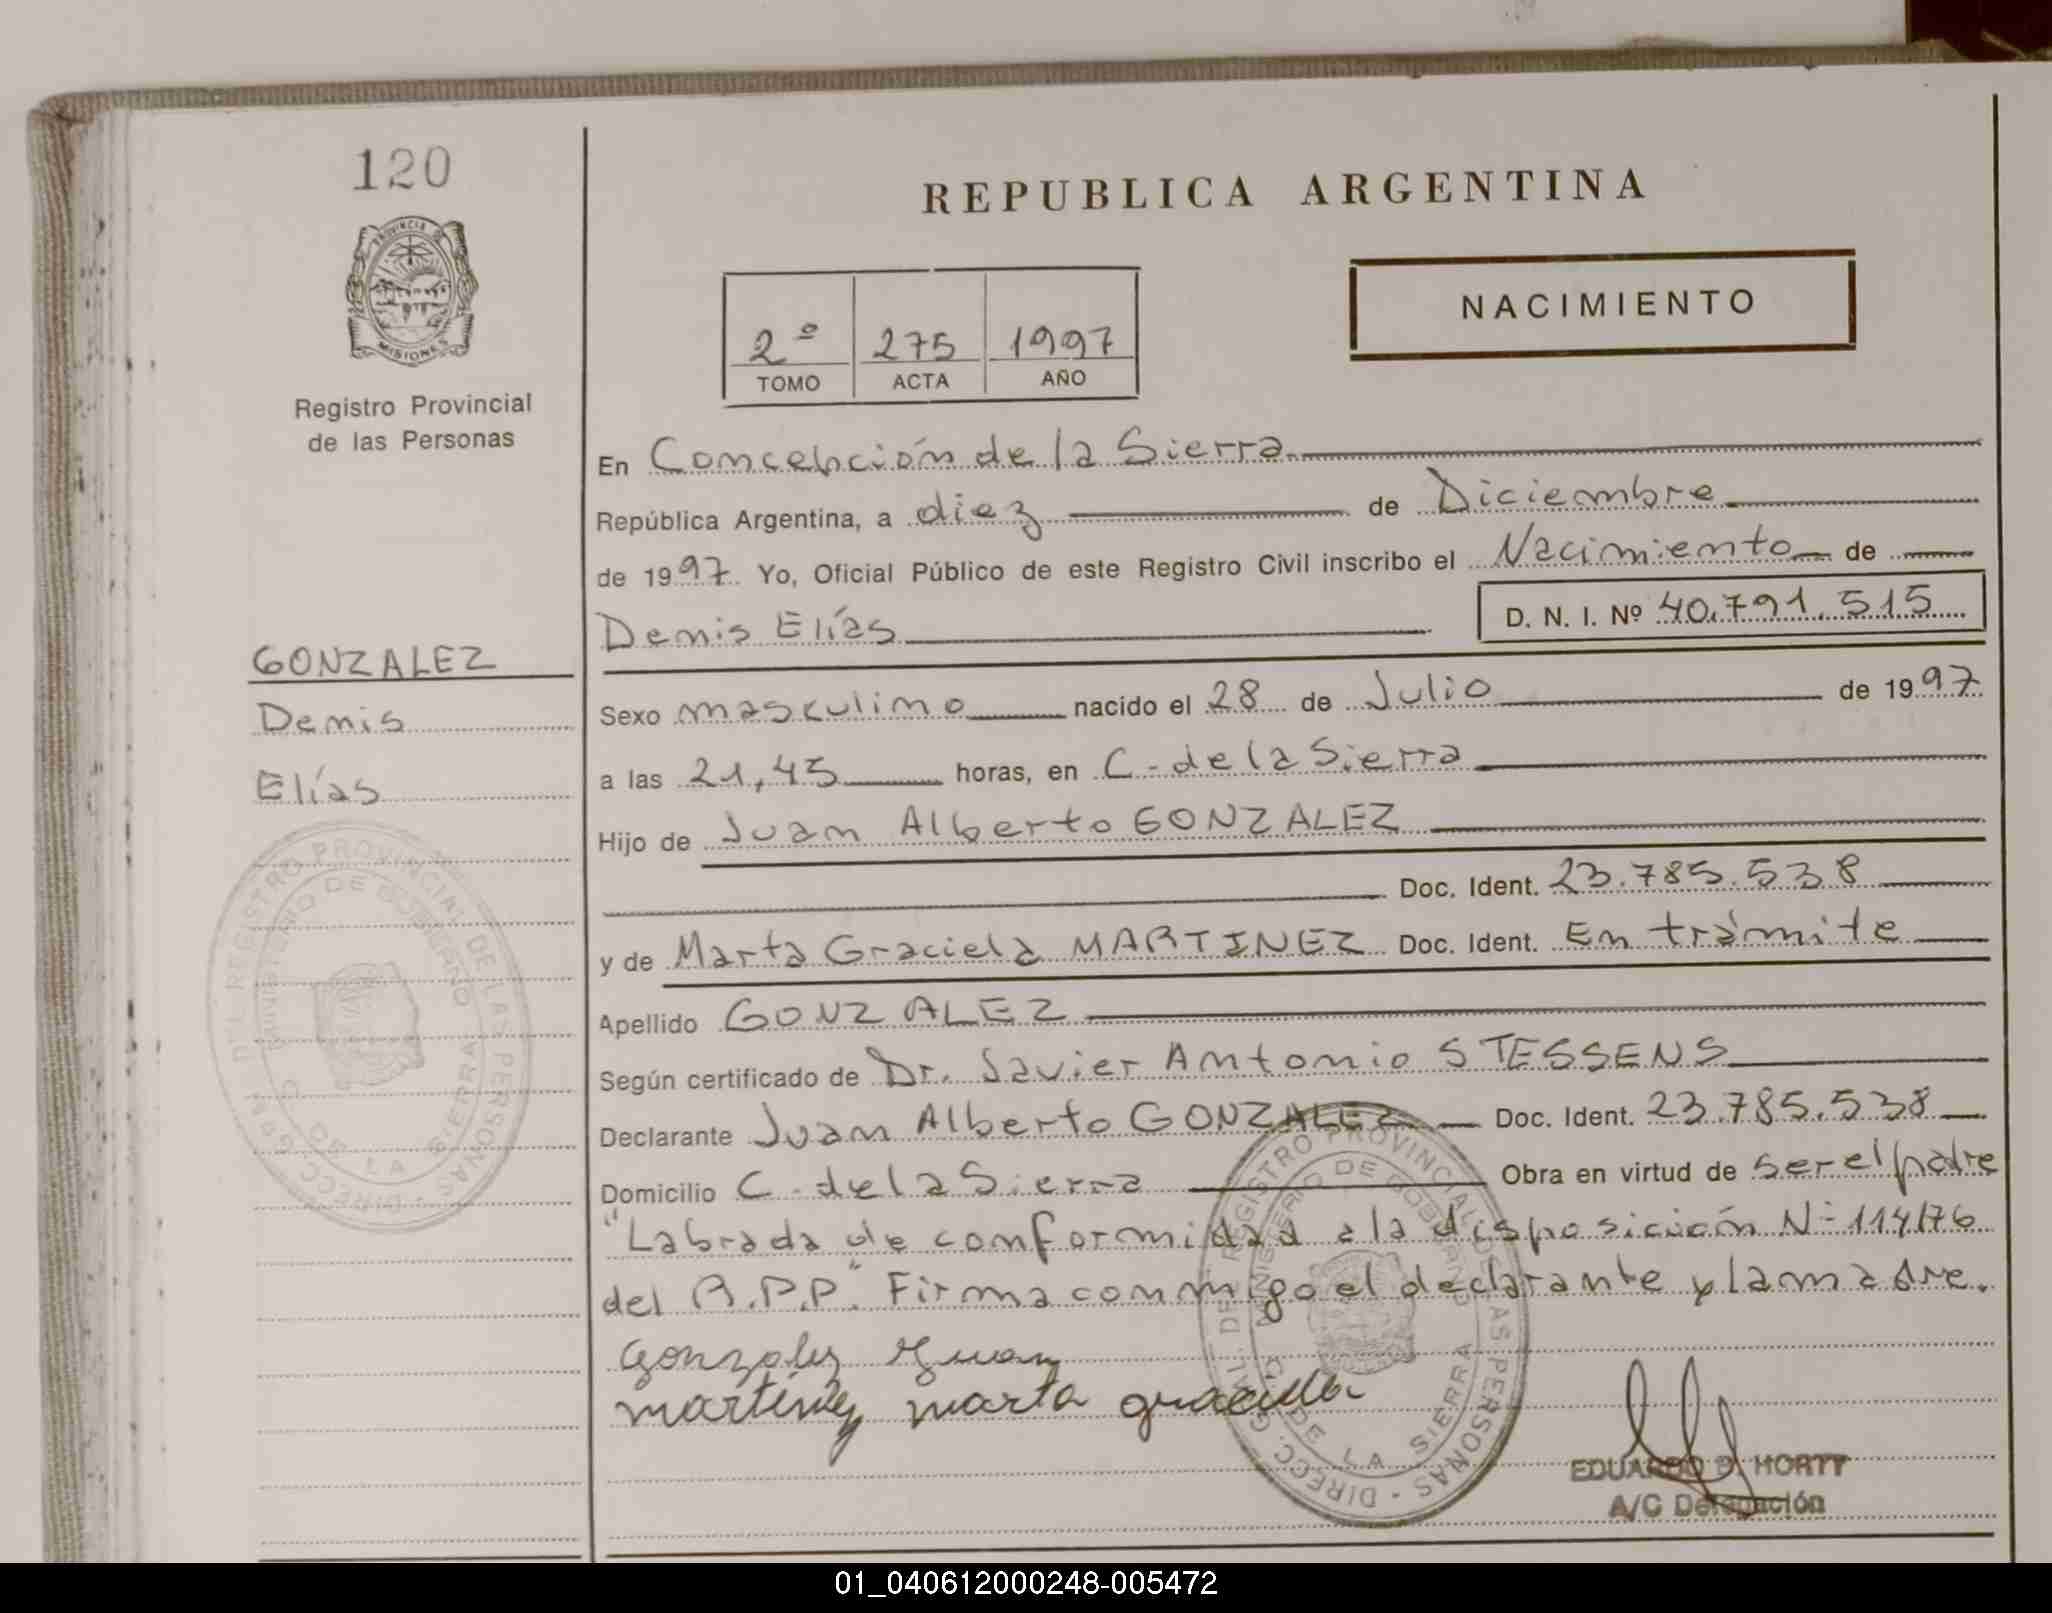 120
PROVINCIA DE
MISIONES
Registro Provincial
de las Personas
GONZALEZ
Denis
Elías
REPUBLICA ARGENTINA
NACIMIENTO
2º 275 1997
TOMO ACTA AÑO
En Concepción de la Sierra
República Argentina, a diez de Diciembre
de 1997. Yo, Oficial Público de este Registro Civil inscribo el Nacimiento de
Denis Elías D. N. I. Nº 40.791.515
Sexo masculino nacido el 28 de Julio de 1997
a las 21,45 horas, en C. de la Sierra
Hijo de Juan Alberto GONZALEZ
Doc. Ident. 23.785.538
y de Marta Graciela MARTINEZ Doc. Ident. En trámite
Apellido GONZALEZ
Según certificado de Dr. Javier Antonio STESSENS
Declarante Juan Alberto GONZALEZ Doc. Ident. 23.785.538
Domicilio C. de la Sierra Obra en virtud de ser el padre
"Labrada de conformidad a la disposición Nº 114/76
del R.P.P." Firma conmigo el declarante y la madre.
Gonzalez Juan
martinez marta graciela
DIRECC. GRAL. DEL REGISTRO PROVINCIAL DE LAS PERSONAS
MINISTERIO DE GOBIERNO
C. DE LA SIERRA
EDUARDO D. HORTT
A/C Delegación
01_040612000248-005472